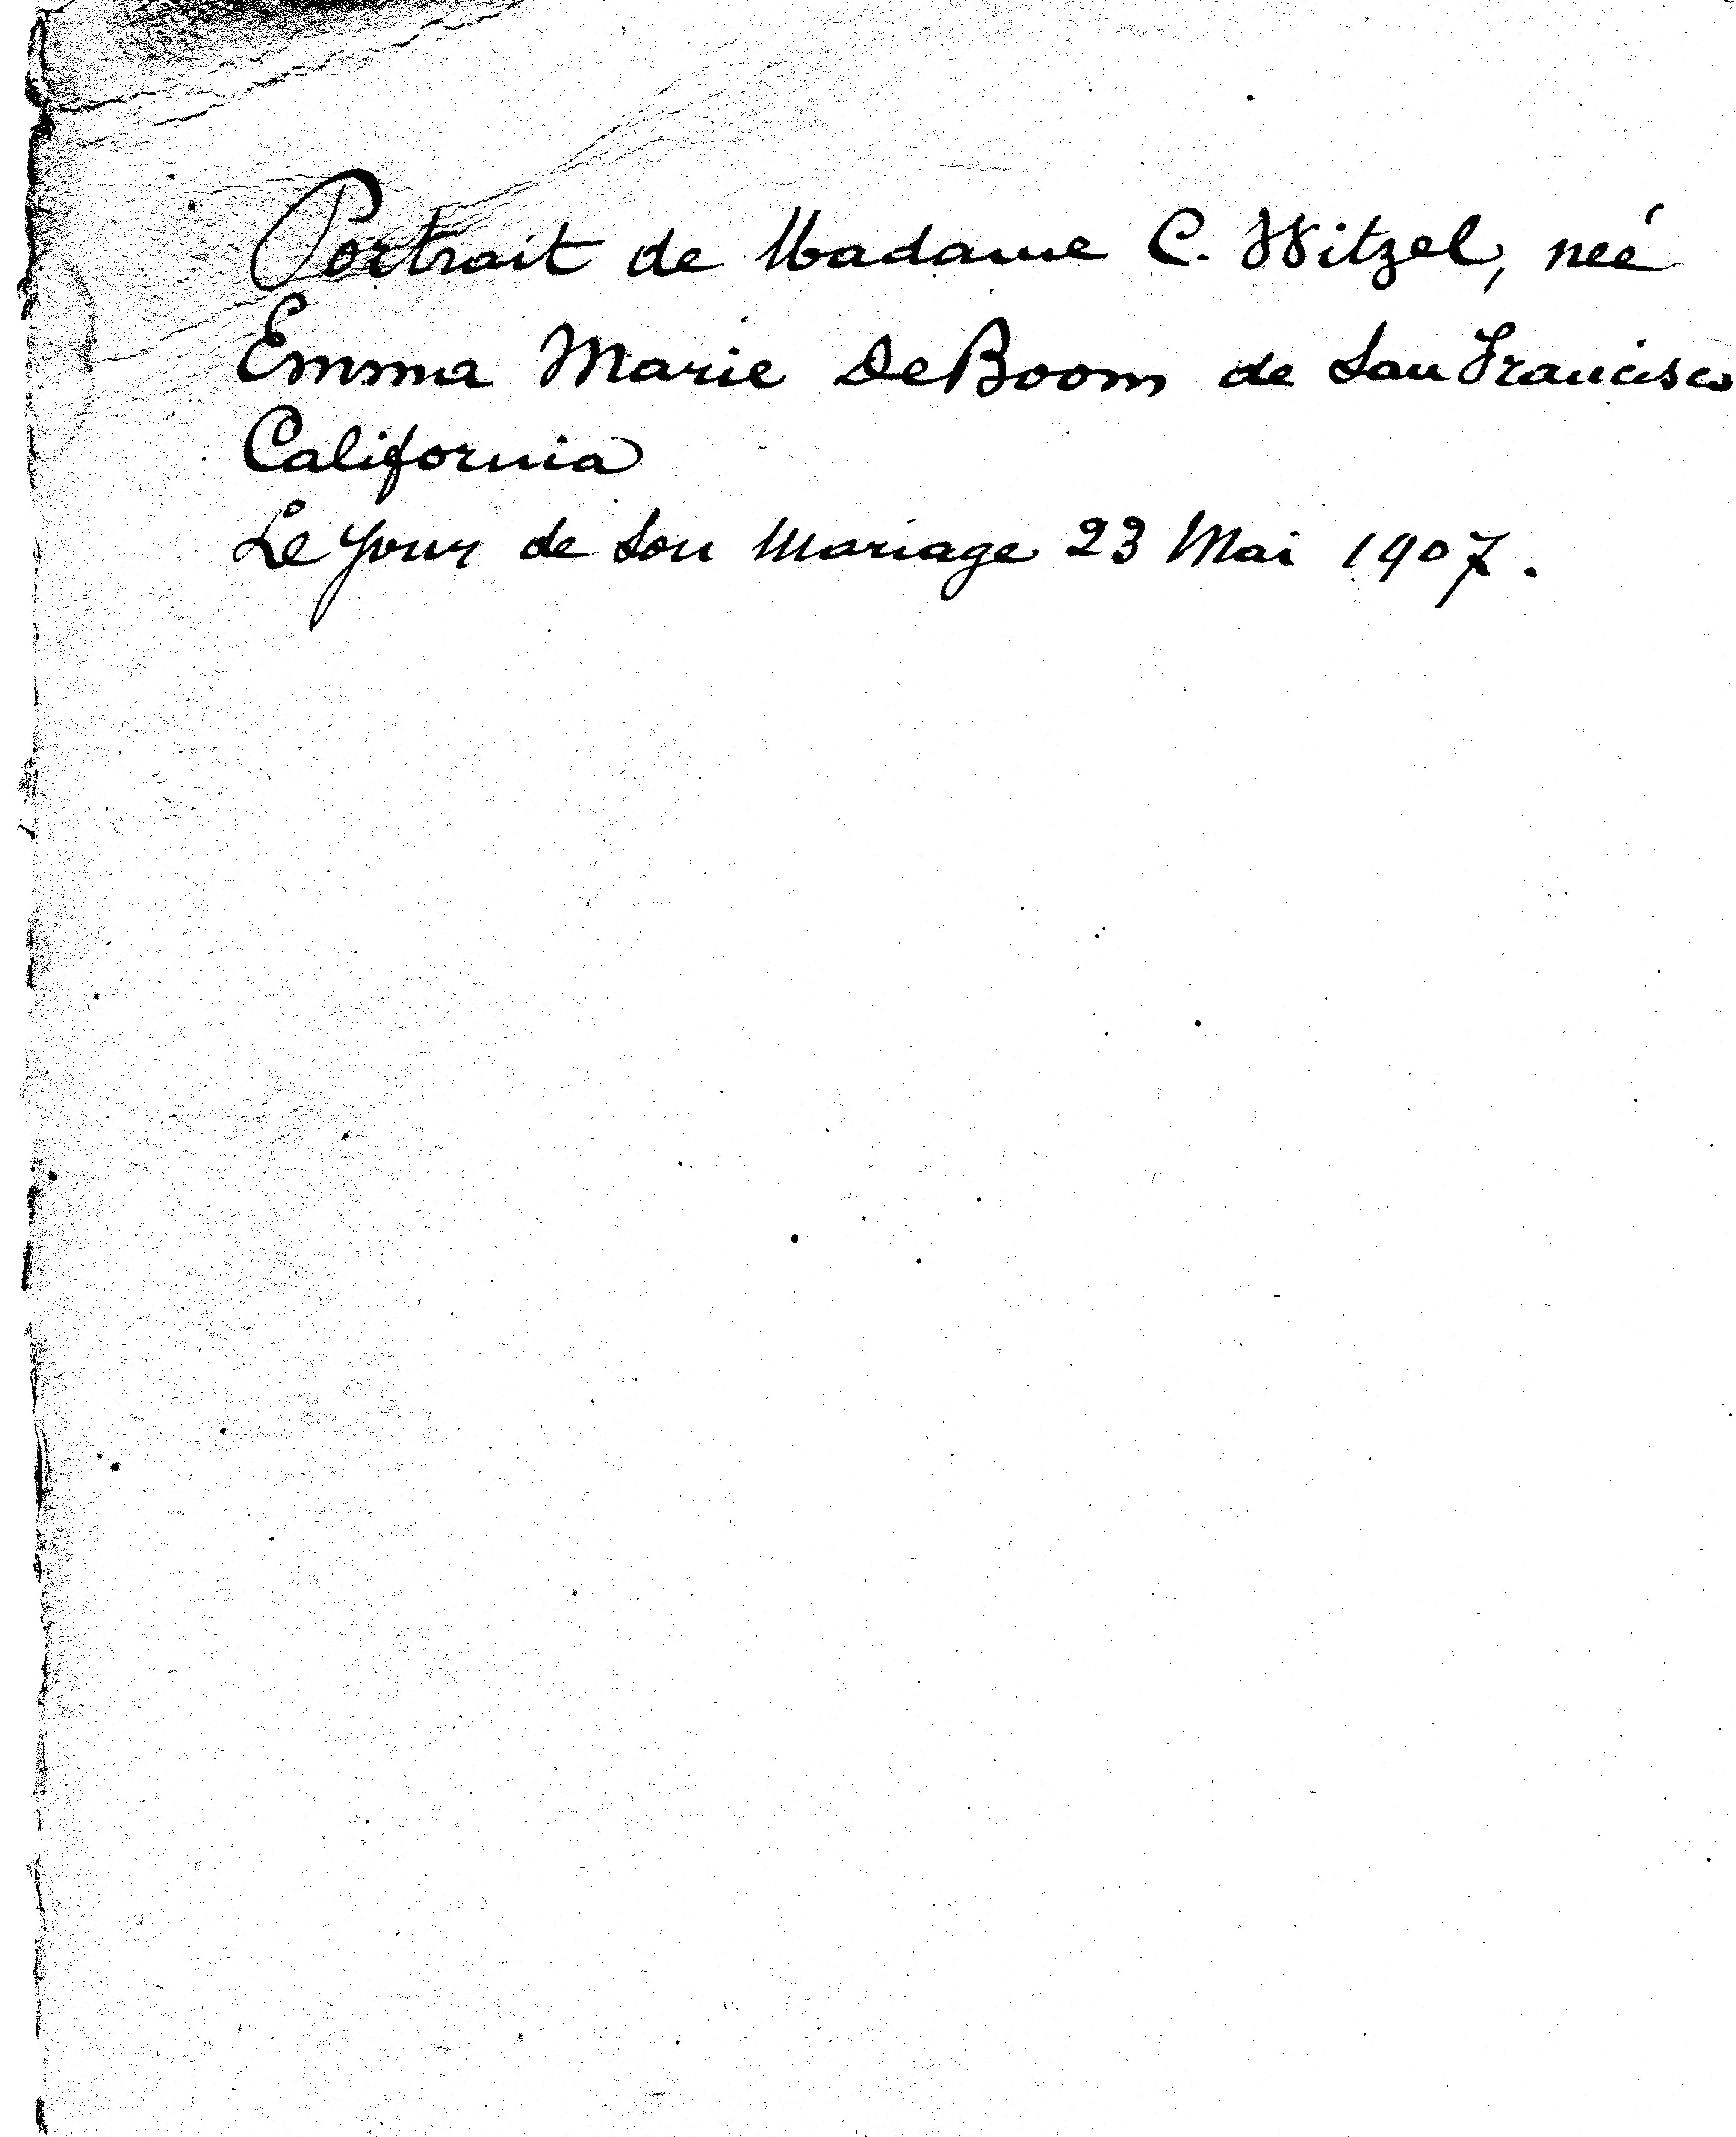 Portrait de Madame C. Witzel, neé
Emma Marie DeBoom de San Francisco
California
Le Jour de Son Mariage 23 Mai 1907.